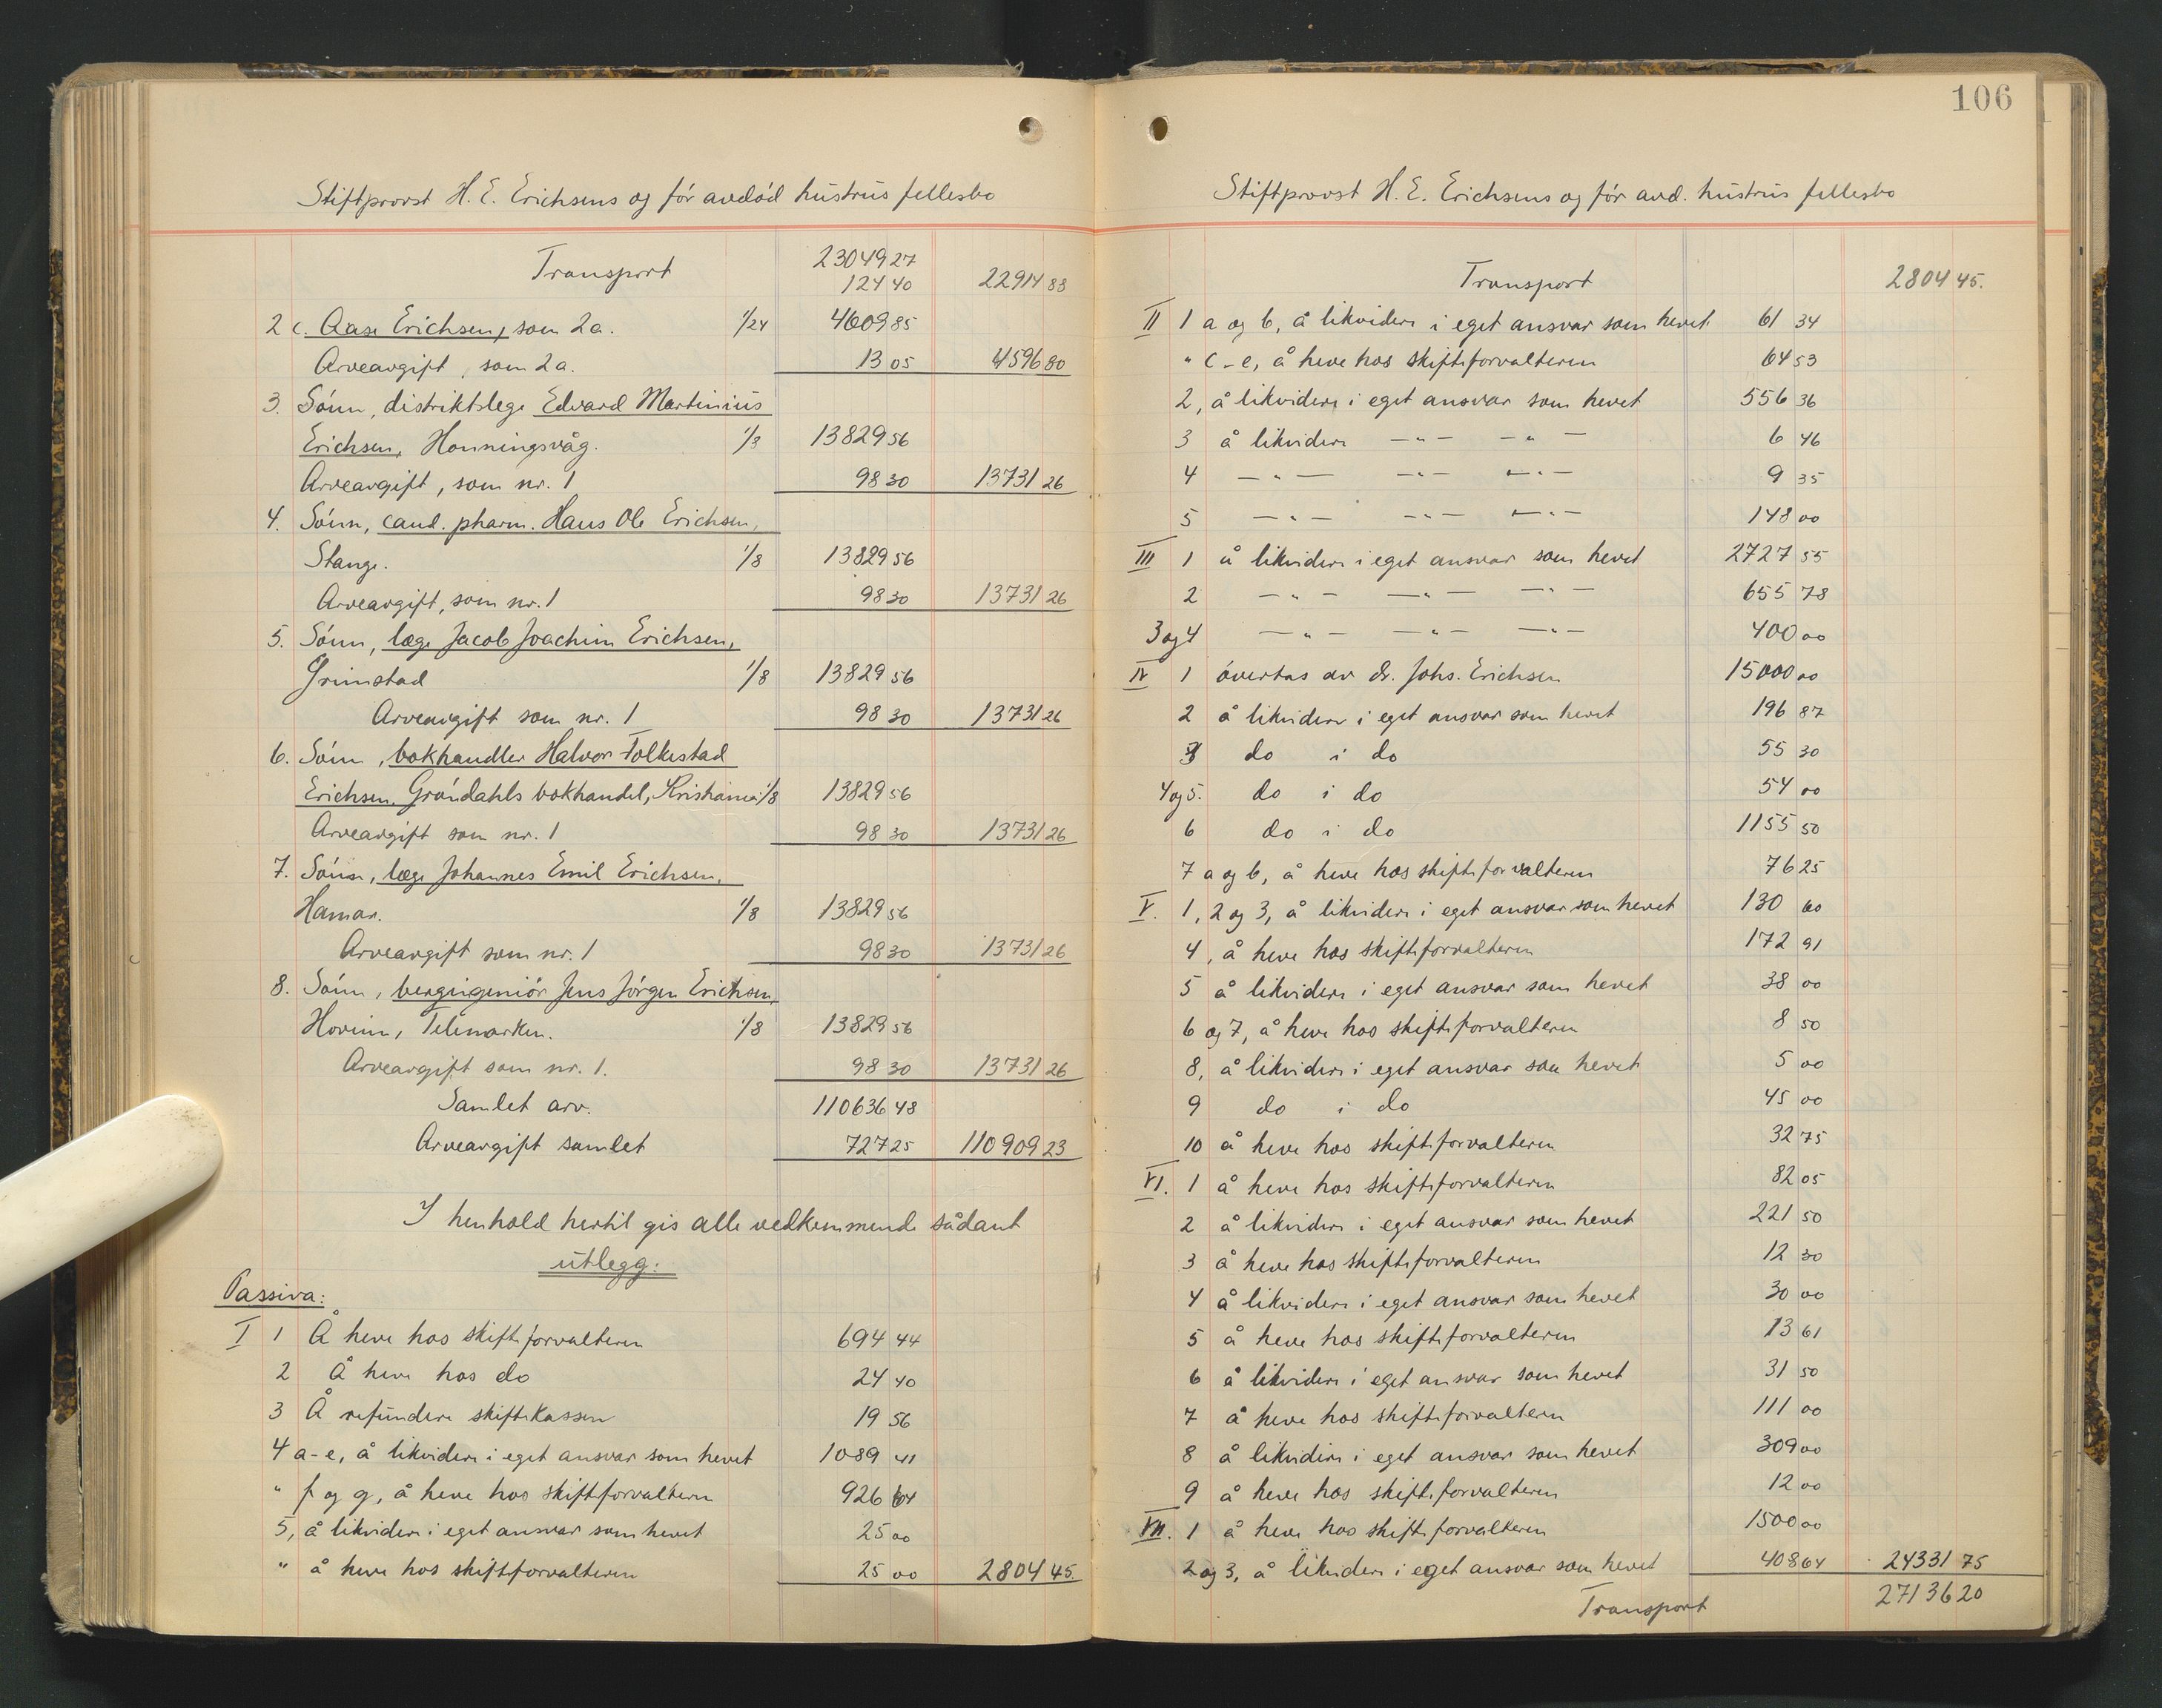 Stiftprovst H. E. Erichsens og før avdød hustrus fellesbo
Transport 23049 27
124 40 22914 88
2 c. Aase Erichsen, som 2a. 1/24 4609 85
Arveavgift, som 2a. 13 05 4596 80
3. Sønn, distriktslege Edvard Martinius
Erichsen, Honningsvåg. 1/8 13829 56
Arveavgift, som nr. 1 98 30 13731 26
4. Sønn, cand. pharm. Hans Ole Erichsen,
Stange. 1/8 13829 56
Arveavgift, som nr. 1 98 30 13731 26
5. Sønn, læge Jacob Joachim Erichsen,
Grimstad 1/8 13829 56
Arveavgift som nr. 1 98 30 13731 26
6. Sønn, bokhandler Halvor Folkestad
Erichsen, Grøndahls bokhandel, Kristiania 1/8 13829 56
Arveavgift som nr. 1 98 30 13731 26
7. Sønn, læge Johannes Emil Erichsen,
Hamar. 1/8 13829 56
Arveavgift som nr. 1 98 30 13731 26
8. Sønn, bergingeniør Jens Jørgen Erichsen,
Hovinn, Telemarken. 1/8 13829 56
Arveavgift som nr. 1. 98 30 13731 26
Samlet arv. 110636 48
Arveavgift samlet 727 25 110909 23
I henhold hertil gis alle vedkommende sådant
utlegg:
Passiva:
I 1 Å heve hos skifteforvalteren 694 44
2 Å heve hos do 24 40
3 Å refundere skiftekassen 19 56
4 a-e, å likvidere i eget ansvar som hevet 1089 41
" f og g, å heve hos skifteforvalteren 926 64
5, å likvidere i eget ansvar som hevet 25 00
" å heve hos skifteforvalteren 25 00 2804 45
106
Stiftprovst H. E. Erichsens og før avd. hustrus fellesbo
Transport 2804 45.
II 1 a og b, å likvidere i eget ansvar som hevet 61 34
" c-e, å heve hos skifteforvalteren 64 53
2, å likvidere i eget ansvar som hevet 556 36
3 å likvidere —"— —"— 6 46
4 —"— —"— —"— 9 35
5 —"— —"— —"— 148 00
III 1 å likvidere i eget ansvar som hevet 2727 55
2 —"— —"— —"— 655 78
3 og 4 —"— —"— —"— 400 00
IV 1 overtas av dr. Johs. Erichsen 15000 00
2 å likvidere i eget ansvar som hevet 196 87
3 do i do 55 30
4 og 5. do i do 54 00
6 do i do 1155 50
7 a og b, å heve hos skifteforvalteren 76 25
V. 1, 2 og 3, å likvidere i eget ansvar som hevet 130 60
4, å heve hos skifteforvalteren 172 91
5 å likvidere i eget ansvar som hevet 38 00
6 og 7, å heve hos skifteforvalteren 8 50
8, å likvidere i eget ansvar som hevet 5 00
9 do i do 45 00
10 å heve hos skifteforvalteren 32 75
VI. 1 å heve hos skifteforvalteren 82 05
2 å likvidere i eget ansvar som hevet 221 50
3 å heve hos skifteforvalteren 12 30
4 å likvidere i eget ansvar som hevet 30 00
5 å heve hos skifteforvalteren 13 61
6 å likvidere i eget ansvar som hevet 31 50
7 å heve hos skifteforvalteren 111 00
8 å likvidere i eget ansvar som hevet 309 00
9 å heve hos skifteforvalteren 12 00
VII. 1 å heve hos skifteforvalteren 1500 00
2 og 3, å likvidere i eget ansvar som hevet 408 64 24331 75
Transport 27136 20